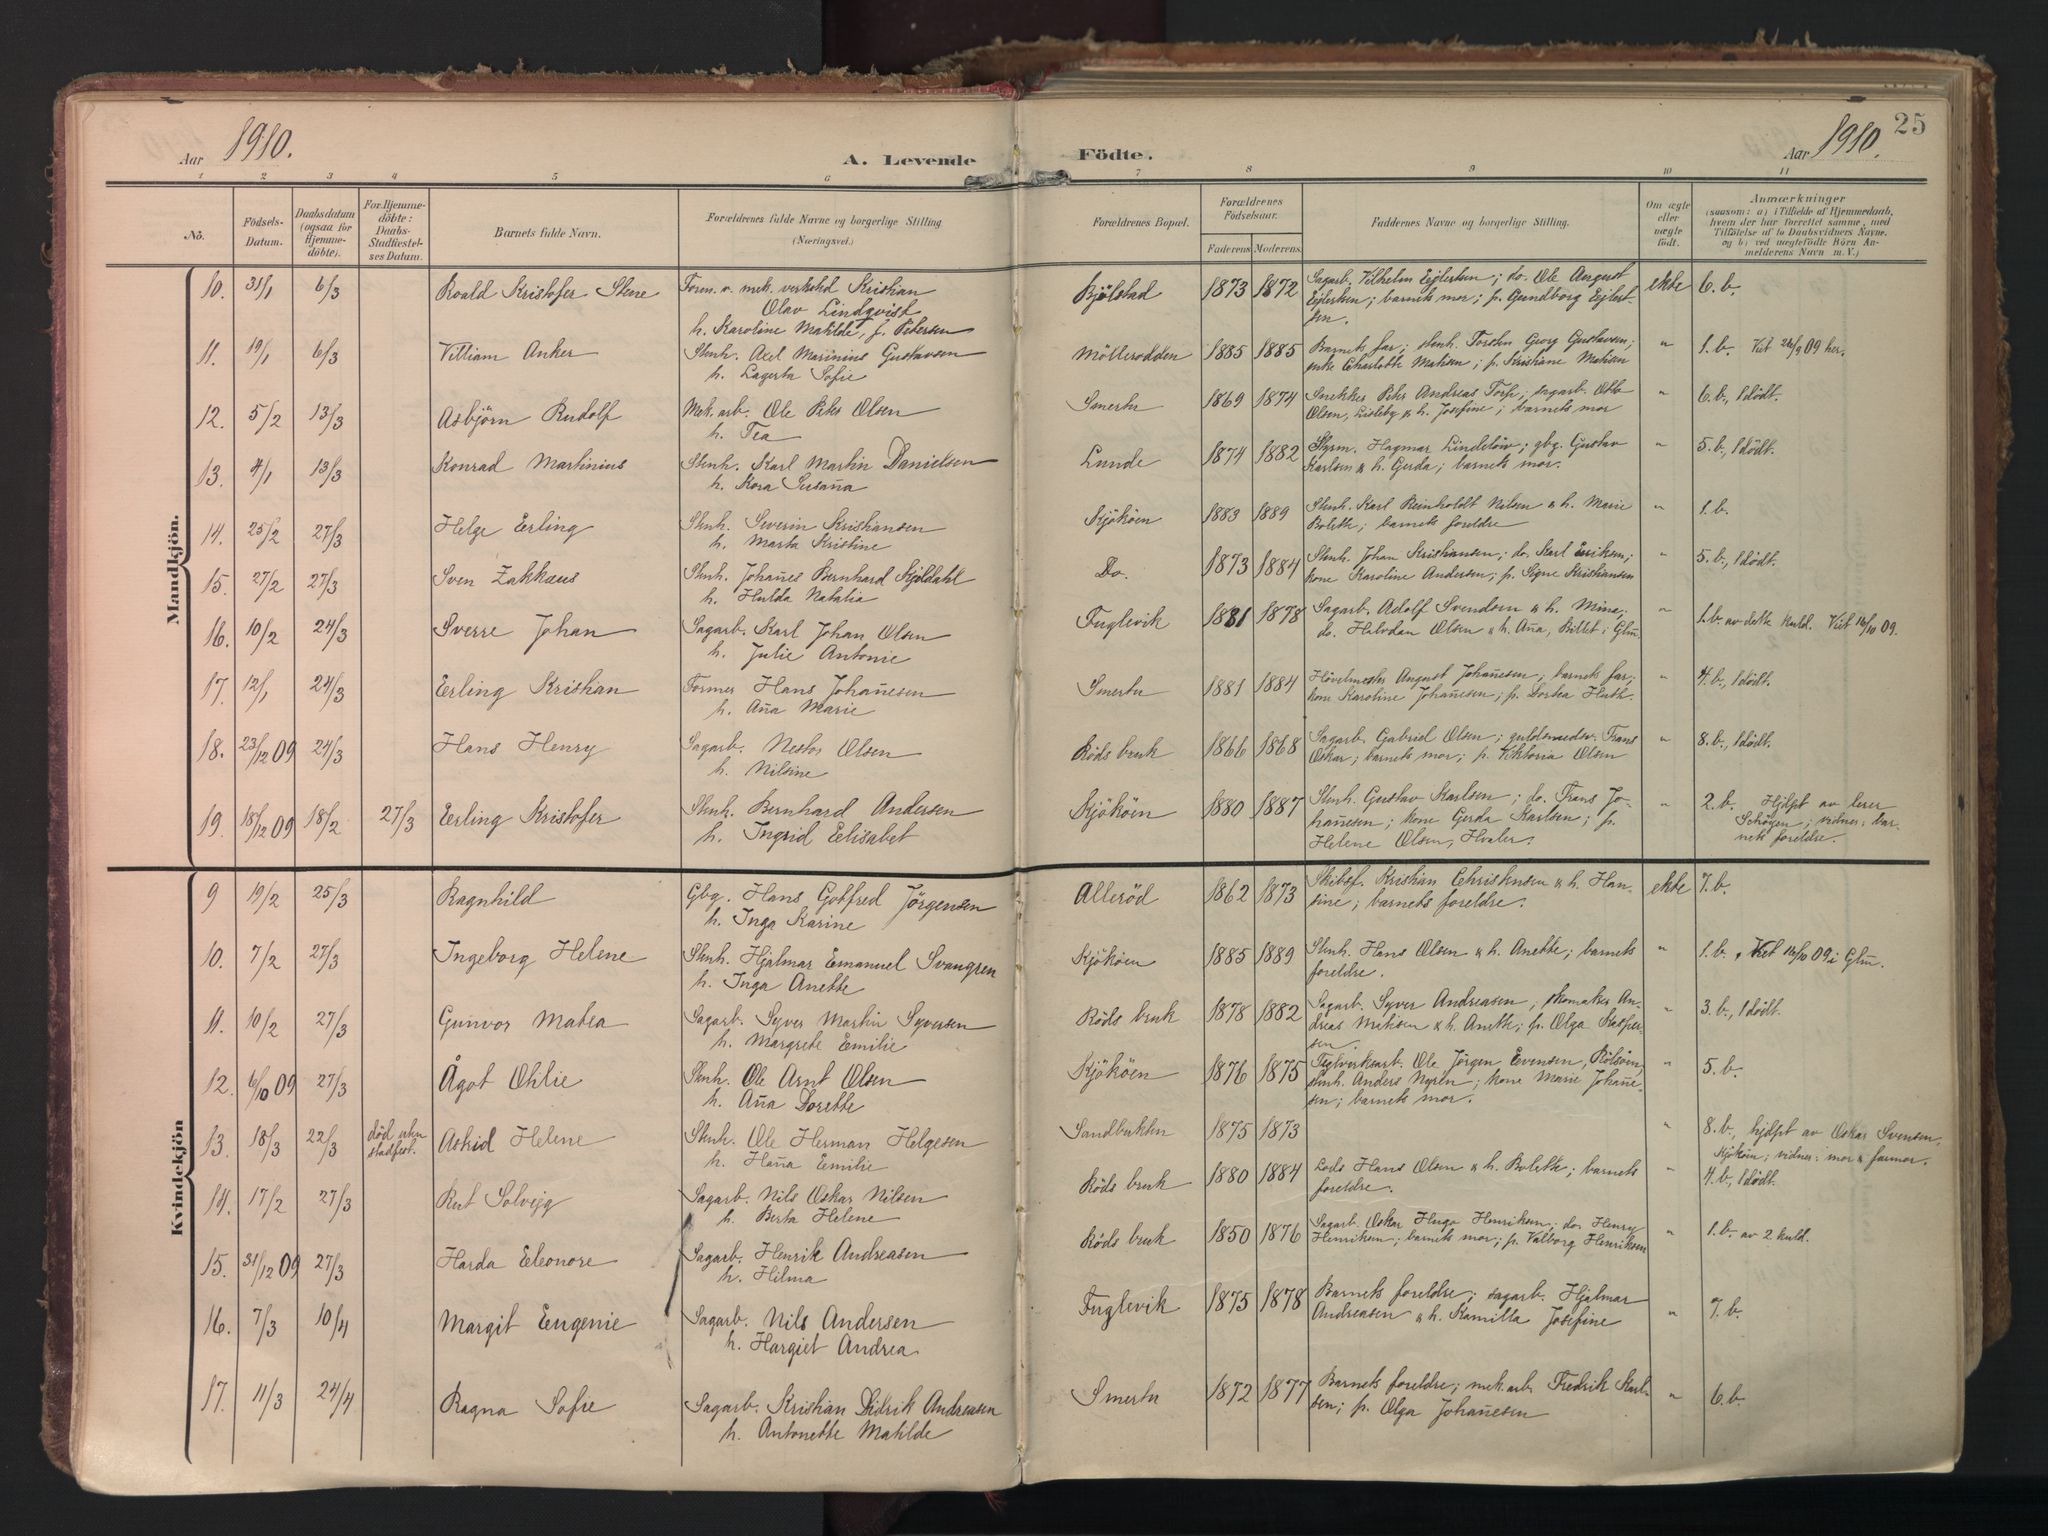 Aar 1910.
A. Levende
Födte.
Aar 1910.
25
1 2 3 4 5 6 7 8 9 10 11
No.
Födsels-
Datum.
Daabsdatum
(ogsaa for
Hjemme-
döbte).
For Hjemme-
döbte:
Daabs-
Stadfæstel-
ses Datum.
Barnets fulde Navn.
Forældrenes fulde Navne og borgerlige Stilling
(Næringsvei.)
Forældrenes Bopæl.
Forældrenes
Födselsaar.
Faderens. Moderens.
Faddernes Navne og borgerlige Stilling.
Om ægte
eller
uægte
födt.
Anmærkninger
(saasom: a) i Tilfælde af Hjemmedaab,
hvem der har forrettet samme, med
Tilföielse af to Daabsvidners Navne.
og b) ved uægtefödte Börn An-
melderens Navn m. V.)
Mandkjön.
10. 31/1 6/3 Roald Kristofer Stene
Form. v. mek. verksted Kristian
Olav Lindqvist
h. Karoline Matilde, f. Petersen
Bjölstad 1873 1872
Sagarb. Vilhelm Eijlertsen; do. Ole August
Eijlertsen; barnets mor; p. Gundborg Eijlert-
sen.
ekte 6. b.
11. 19/1 6/3 William Anker
Stenh. Axel Marinius Gustavsen
h. Lagerta Sofie
Mölleodden 1885 1885
Barnets far; stenh. Torsten Georg Gustavsen;
enke Charlotte Matisen; p. Kristiane Matisen
" 1. b. Viet 26/9 09 her.
12. 5/2 13/3 Asbjörn Rudolf
Mek. arb. Ole Peter Olsen
h. Tea
Smertu 1869 1874
Snekker Peter Andreas Torp; sagarb. Otto
Olsen, Lisleby & h. Josefine; barnets mor
" 6. b., 1 dödt.
13. 4/1 13/3 Konrad Martinius
Stenh. Karl Martin Danielsen
h. Kora Susaña
Lunde 1874 1882
Styrm. Hagmar Lindelöw; gbg. Gustav
Karlsen & h. Gerda; barnets mor.
" 5. b., 1 dödt.
14. 25/2 27/3 Helge Erling
Stenh. Severin Kristiansen
h. Marta Kristine
Kjököen 1883 1889
Stenh. Karl Reinholdt Nilsen & h. Marie
Bolette; barnets foreldre
" 1. b.
15. 27/2 27/3 Sven Zakkæus
Stenh. Johañes Bernhard Kjöldahl
h. Hulda Natalia
Do. 1873 1884
Stenh. Johan Kristiansen; do. Karl Eriksen;
kone Karoline Andersen; p. Signe Kristiansen
" 5. b., 1 dödt.
16. 10/2 24/3 Sverre Johan
Sagarb. Karl Johan Olsen
h. Julie Antonie
Fuglevik 1881 1878
Sagarb. Adolf Svendsen & h. Mina;
do. Halvdan Olsen & h. Aña, Billet i Glm.
" 1. b. av dette kuld. Viet 16/10 09.
17. 12/1 24/3 Erling Kristian
Former Hans Johañesen
h. Aña Marie
Smertu 1881 1884
Hövelmester August Johañesen; barnets far;
kone Karoline Johañesen; p. Dortea Huth-
" 4. b., 1 dödt.
18. 23/12 09 24/3 Hans Henry
Sagarb. Nestor Olsen
h. Nilsine
Röds bruk 1866 1868
Sagarb. Gabriel Olsen; guldsmedsv. Frans
Oskar; barnets mor; p. Viktoria Olsen
" 8. b., 1 dödt.
19. 18/12 09 18/2 27/3 Erling Kristofer
Stenh. Bernhard Andersen
h. Ingrid Elisabet
Kjököen 1880 1887
Stenh. Gustav Karlsen; do. Frans Jo-
hañesen; kone Gerda Karlsen; p.
Helene Olsen, Hvaler.
" 2. b. Hjdpt av lærer
Schöyen; vidner: bar-
nets foreldre.
Kvindekjön
9 19/2 25/3 Ragnhild
Gbg. Hans Gotfred Jörgensen
h. Inga Karine
Alleröd 1862 1873
Skibsf. Kristian Christensen & h. Han-
sine; barnets foreldre.
ekte 7. b.
10. 7/2 27/3 Ingeborg Helene
Stenh. Hjalmar Emanuel Svangren
h. Inga Anette
Kjököen 1885 1889
Stenh. Hans Olsen & h. Anette; barnets
foreldre.
" 1. b. Viet 16/10 09 i Glm.
11. 10/2 27/3 Gunvor Matea
Sagarb. Syver Martin Syversen
h. Margrete Emilie
Röds bruk 1878 1882
Sagarb. Syver Andreasen; skomaker An-
dreas Matisen & h. Anette; p. Olga Kasper-
sen.
" 3. b., 1 dödt.
12. 6/10 09 27/3 Ågot Othlie
Stenh. Ole Arnt Olsen
h. Aña Dorette
Kjököen 1876 1875
Teglverksarb. Ole Jörgen Evensen, Rolsöen,
stenh. Anders Nyren; kone Marie Johañe-
sen; barnets mor.
" 5. b.
13. 18/3 22/3 död uten
stadfest.
Astrid Helene
Stenh. Ole Herman Helgesen
h. Haña Emilie
Sandbukten 1875 1873
" 8. b., hjdpt av Oskar Svensen,
Kjököen; vidner: mor & farmor.
14. 17/2 27/3 Rut Solvejg
Sagarb. Nils Oskar Nilsen
h. Berta Helene
Röds bruk 1880 1884
Lods Hans Olsen & h. Bolette; barnets
foreldre.
" 4. b., 1 dödt.
15. 31/12 09 27/3 Harda Eleonore
Sagarb. Henrik Andreasen
h. Hilma
Röds bruk 1850 1876
Sagarb. Oskar Hugo Henriksen; do. Henry
Henriksen; barnets mor; p. Valborg Henriksen
" 1. b. av 2 kuld.
16. 7/3 10/4 Margit Eugenie
Sagarb. Nils Andersen
h. Hargiet Andrea
Fuglevik 1875 1878
Barnets foreldre; sagarb. Hjalmar
Andreasen & h. Kamilla Josefine
" 7. b.
17. 11/3 24/4 Ragna Sofie
Sagarb. Kristian Didrik Andreasen
h. Antonette Matilde
Smertu 1872 1877
Barnets foreldre; mek. arb. Fredrik Karl-
sen; p. Olga Johañesen
" 6. b.